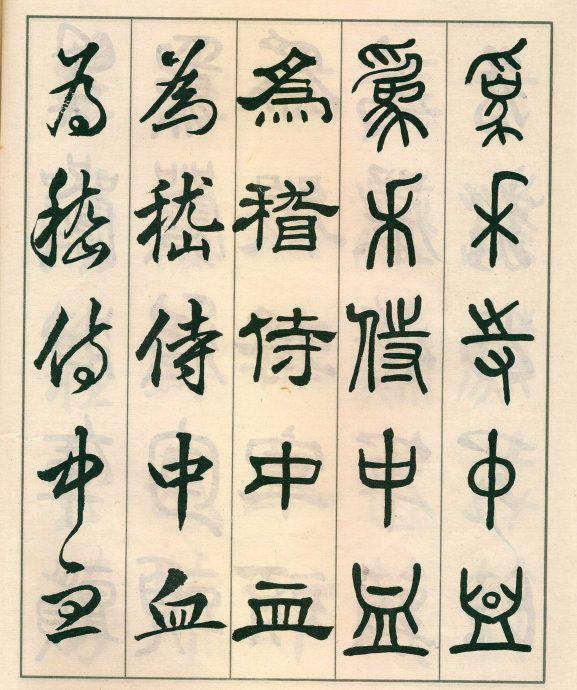 為禾寺中血
為禾侍中血
為稽侍中血
為嵇侍中血
為嵇侍中血